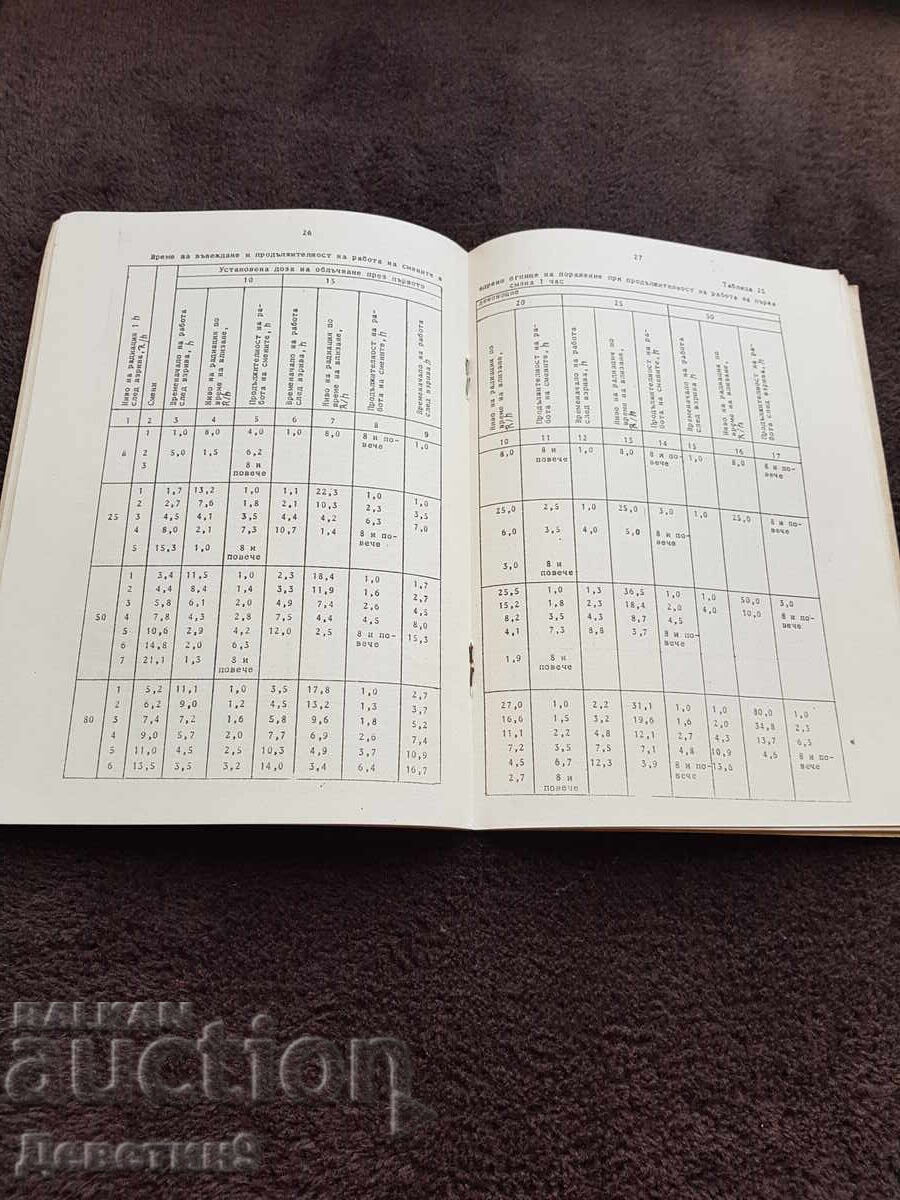 26
Време за въвеждане и продължителност на работа на смените в
Установена доза на облъчване през първото
10 15
Ниво на радиация 1 h след взрива, R/h
Смени
Времeначало на работа след взрива, h
Ниво на радиация по време на влизане, R/h
Продължителност на работа на смените, h
Времeначало на работа след взрива, h
Ниво на радиация по време на влизане, R/h
Продължителност на работа на смените, h
Времeначало на работа след взрива, h
1 2 3 4 5 6 7 8 9
1 1,0 8,0 4,0 1,0 8,0 8 и повече 1,0
8 2 5,0 1,5 6,2
3 8 и повече
1 1,7 13,2 1,0 1,1 22,3 1,0 1,0
2 2,7 7,6 1,8 2,1 10,3 2,3 3,5
25 3 4,5 4,1 3,5 4,4 4,2 6,3 7,0
4 8,0 2,1 7,3 10,7 1,4 8 и повече
5 15,3 1,0 8 и повече
1 3,4 11,5 1,0 2,3 18,4 1,0 1,7
2 4,4 8,4 1,4 3,3 11,9 1,6 2,7
3 5,8 6,1 2,0 4,9 7,4 2,6 4,5
50 4 7,8 4,3 2,8 7,5 4,4 4,5 8,0
5 10,6 2,9 4,2 12,0 2,5 8 и повече 15,3
6 14,8 2,0 6,3
7 21,1 1,3 8 и повече
1 5,2 11,1 1,0 3,5 17,8 1,0 2,7
2 6,2 9,0 1,2 4,5 13,2 1,3 3,7
80 3 7,4 7,2 1,6 5,8 9,6 1,8 5,2
4 9,0 5,7 2,0 7,7 6,9 2,6 7,4
5 11,0 4,5 2,5 10,3 4,9 3,7 10,9
6 13,5 3,5 3,2 14,0 3,4 6,4 16,7
27
Таблица 25
ядрено огнище на поражение при продължителност на работа на първа
смяна 1 час
20 25 50
Ниво на радиация по време на влизане, R/h
Продължителност на работа на смените, h
Времeначало на работа след взрива, h
Ниво на радиация по време на влизане, R/h
Продължителност на работа на смените, h
Времeначало на работа след взрива, h
Ниво на радиация по време на влизане, R/h
10 11 12 13 14 15 16 17
8,0 8 и повече 1,0 8,0 8 и повече 1,0 8,0 8 и повече
25,0 2,5 1,0 25,0 3,0 1,0 25,0 8 и повече
6,0 3,5 4,0 5,0 8 и повече
3,0 8 и повече
25,5 1,0 1,3 36,5 1,0 1,0 50,0 3,0
15,2 1,8 2,3 18,4 2,0 4,0 10,0 8 и повече
8,2 3,5 4,3 8,7 4,5
4,1 7,3 8,8 3,7 8 и повече
1,9 8 и повече
27,0 1,0 2,2 31,1 1,0 1,0 80,0 1,0
16,6 1,5 3,2 19,6 1,6 2,0 34,8 2,3
11,1 2,2 4,8 12,1 2,7 4,3 13,7 6,3
7,2 3,5 7,5 7,1 4,8 10,9 4,5 8 и повече
4,5 6,7 12,3 3,9 8 и повече 13,6
2,7 8 и повече
BALKAN
auction
Деветин9